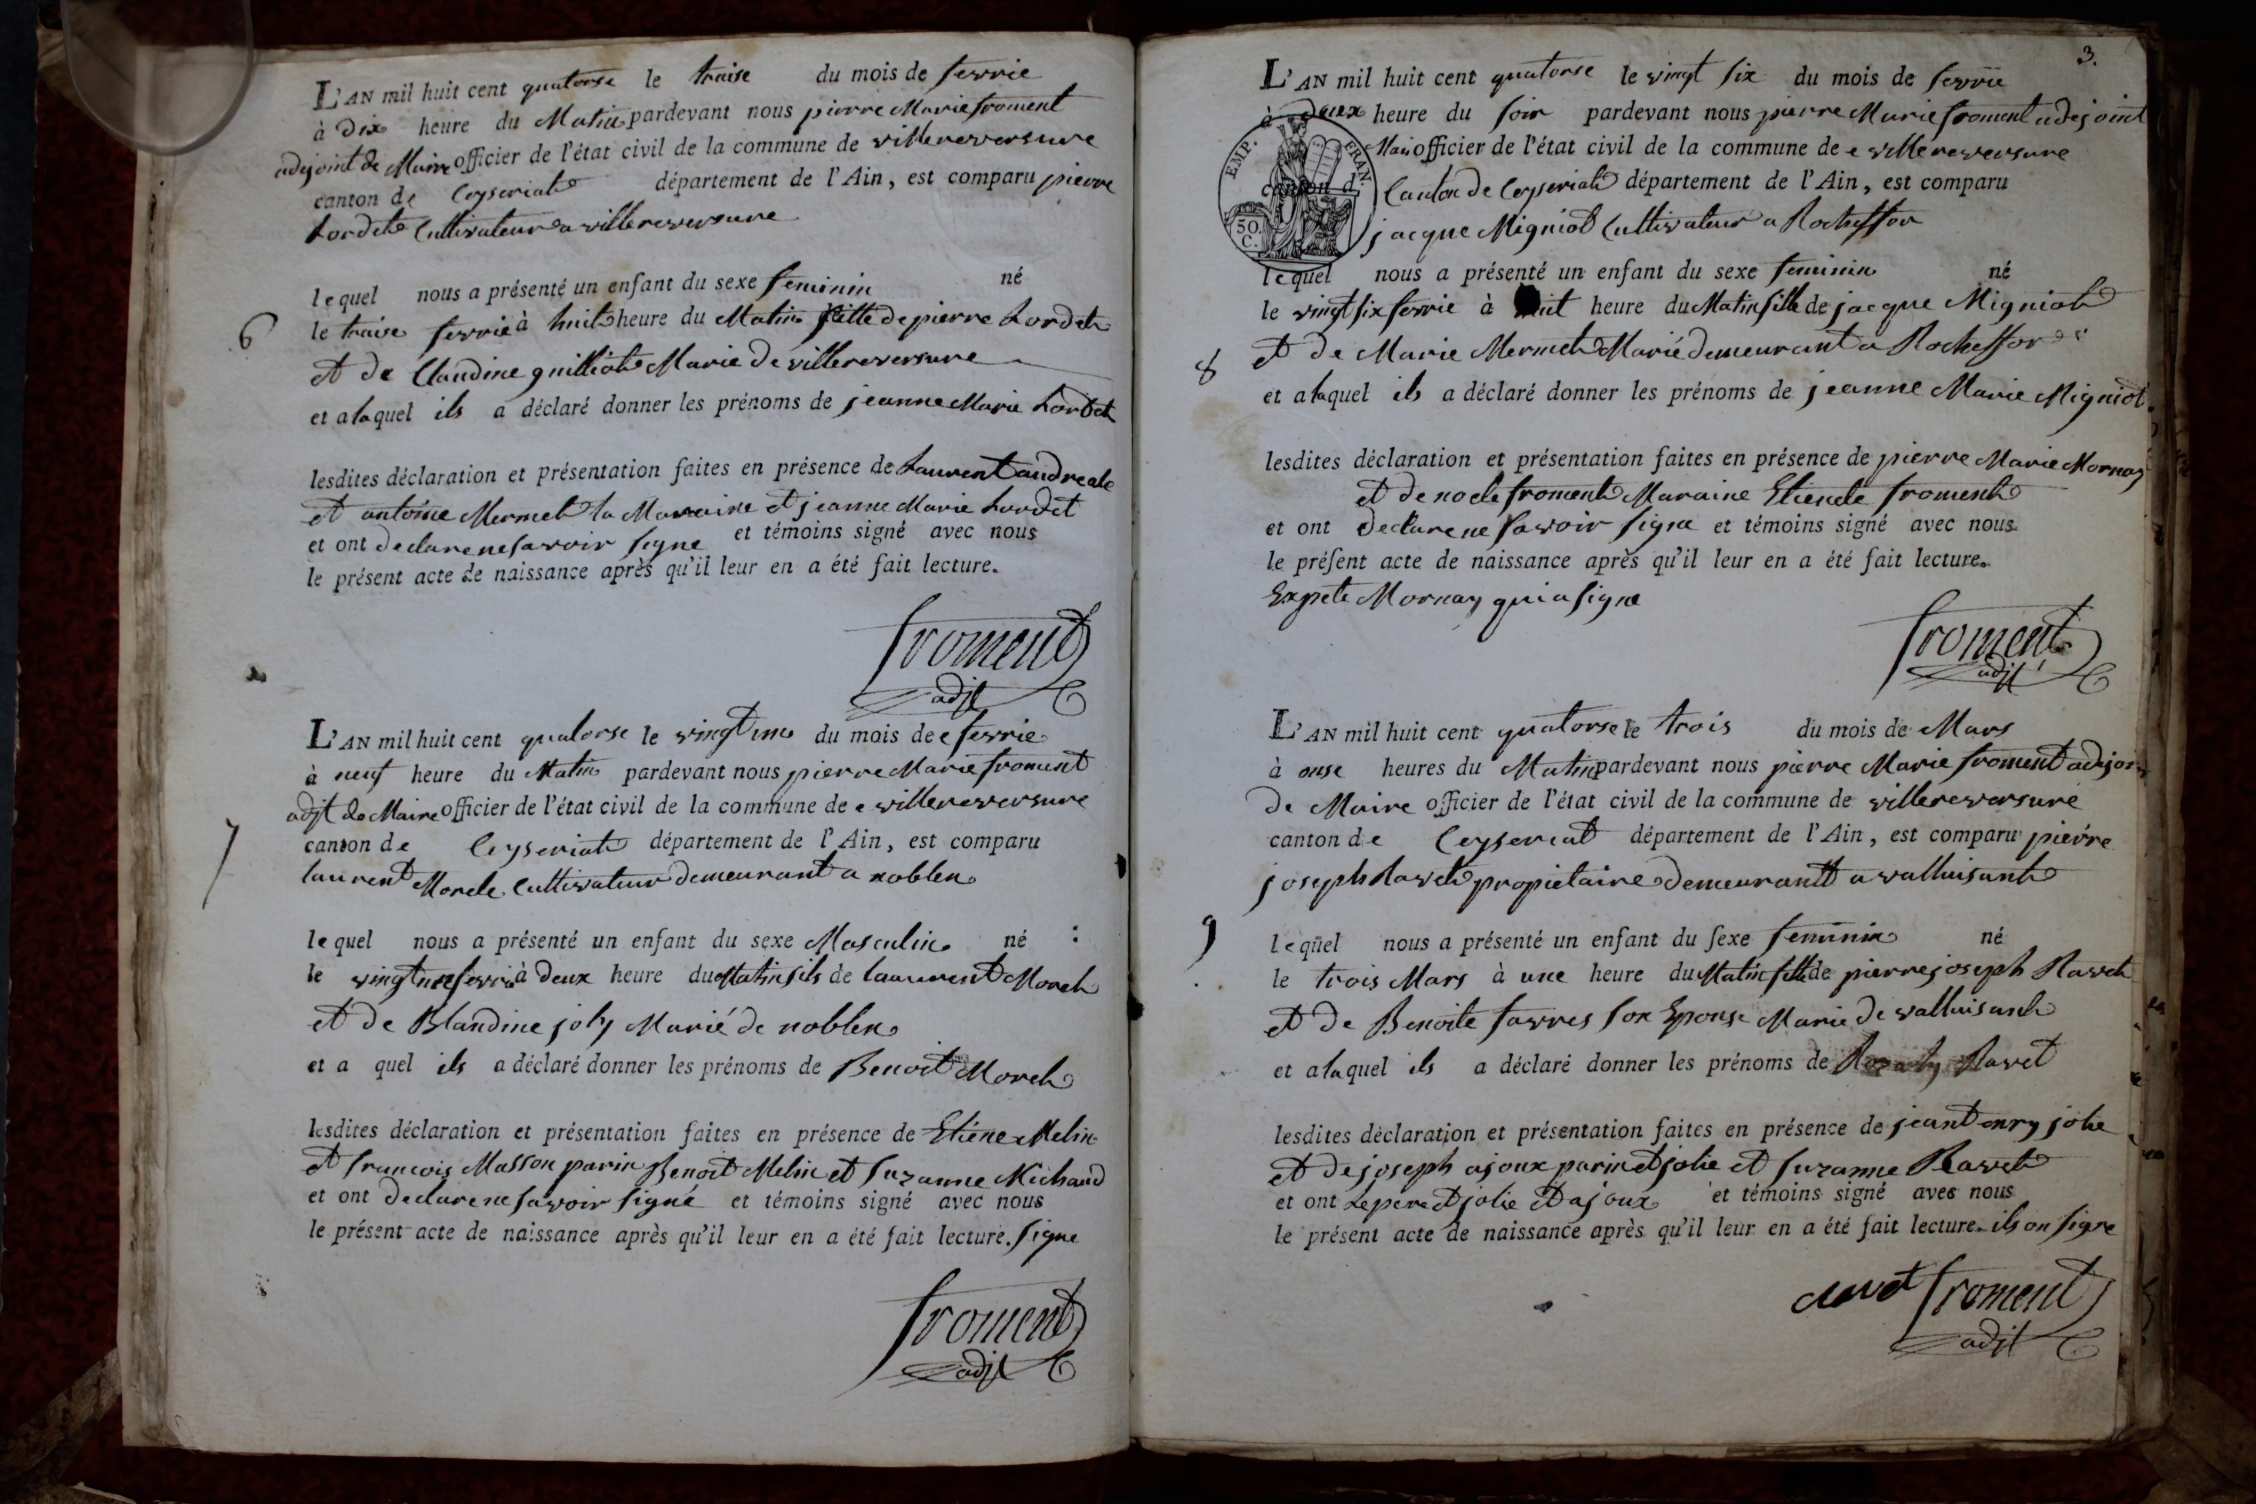 L'AN mil huit cent quatorse le traise du mois de fevrie
à dix heure du Matin pardevant nous pierre Marie froment
adejoint de Maire officier de l'état civil de la commune de villereversure
canton de Ceyseriat département de l'Ain, est comparu pierre
Lordet Cultivateur a villereversure
lequel nous a présenté un enfant du sexe feminin né
6
le traise fevrie à huit heure du Matin fille de pierre Lordet
et de Claudine guilliot Marie de villereversure
et a laquel ils a déclaré donner les prénoms de jeanne Marie Lordet
lesdites déclaration et présentation faites en présence de Laurent
et antoine Mermet la Maraine et jeanne Marie Lordet
et ont declare ne savoir signe et témoins signé avec nous
le présent acte de naissance après qu'il leur en a été fait lecture.
froment
adjt
L'AN mil huit cent quatorse le vingt une du mois de fevrie
à neuf heure du Matin pardevant nous pierre Marie froment
adjt de Maire officier de l'état civil de la commune de villereversure
7
canton de Ceyseriat département de l'Ain, est comparu
laurent Morel Cultivateur demeurant a noblen
lequel nous a présenté un enfant du sexe Masculin né :
le vingt une fevrie à deux heure du Matin fils de laurent Morel
et de Blandine joly Marié de noblen
et a quel ils a déclaré donner les prénoms de Benoit Morel
lesdites déclaration et présentation faites en présence de Etiene Melin
et francois Masson parin Benoit Melin et Suzanne Michaud
et ont declare ne savoir signé et témoins signé avec nous
le présent acte de naissance après qu'il leur en a été fait lecture. signe
froment
adjt
3.
L'AN mil huit cent quatorse le vingt six du mois de fevrie
à deux heure du soir pardevant nous pierre Marie froment adejoint
Mair officier de l'état civil de la commune de villereversure
EMP. FRAN.
50. C.
canton d Canton de Ceyseriat département de l'Ain, est comparu
jacque Migniot Cultivateur a Rocheffor
lequel nous a présenté un enfant du sexe feminin né
le vingt six fevrie à huit heure du Matin fille de jacque Migniot
8
et de Marie Mermet Marié demeurant a Rocheffor
et a laquel ils a déclaré donner les prénoms de jeanne Marie Migniot
lesdites déclaration et présentation faites en présence de pierre Marie Mornay
et de noele froment Maraine froment
et ont declare ne savoir signe et témoins signé avec nous
le présent acte de naissance après qu'il leur en a été fait lecture.
Expete Mornay qui a signe
froment
adjt
L'AN mil huit cent quatorse le trois du mois de Mars
à onse heures du Matin pardevant nous pierre Marie froment adejoin
de Maire officier de l'état civil de la commune de villereversure
canton de Ceyseriat département de l'Ain, est comparu pierre
joseph Ravet propietaire demeurant a valluisant
9
lequel nous a présenté un enfant du sexe feminin né
le trois Mars à une heure du Matin fille de pierre joseph Ravet
et de Benoite favres son Epouse Marie de valluisant
et a laquel ils a déclaré donner les prénoms de Rozaly Ravet
lesdites déclaration et présentation faites en présence de jolie
et de joseph ajoux parin et jolie et Suzanne Ravet
et ont Le pere et jolie et ajoux et témoins signé avec nous
le présent acte de naissance après qu'il leur en a été fait lecture. ils on signe
froment
adjt